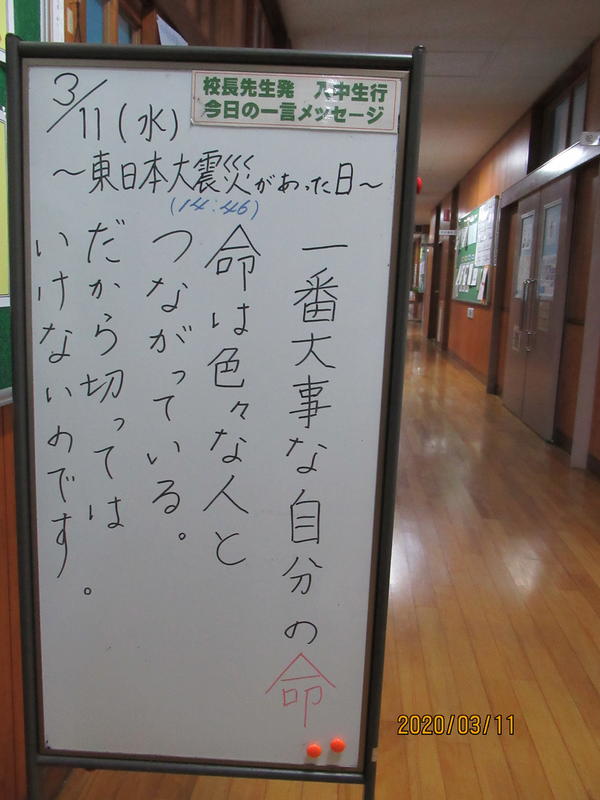 校長先生発 入中生行
今日の一言メッセージ
3/11(水)
～東日本大震災があった日～
(14:46)
一番大事な自分の命
命は色々な人と
つながっている。
だから切っては
いけないのです。
2020/03/11